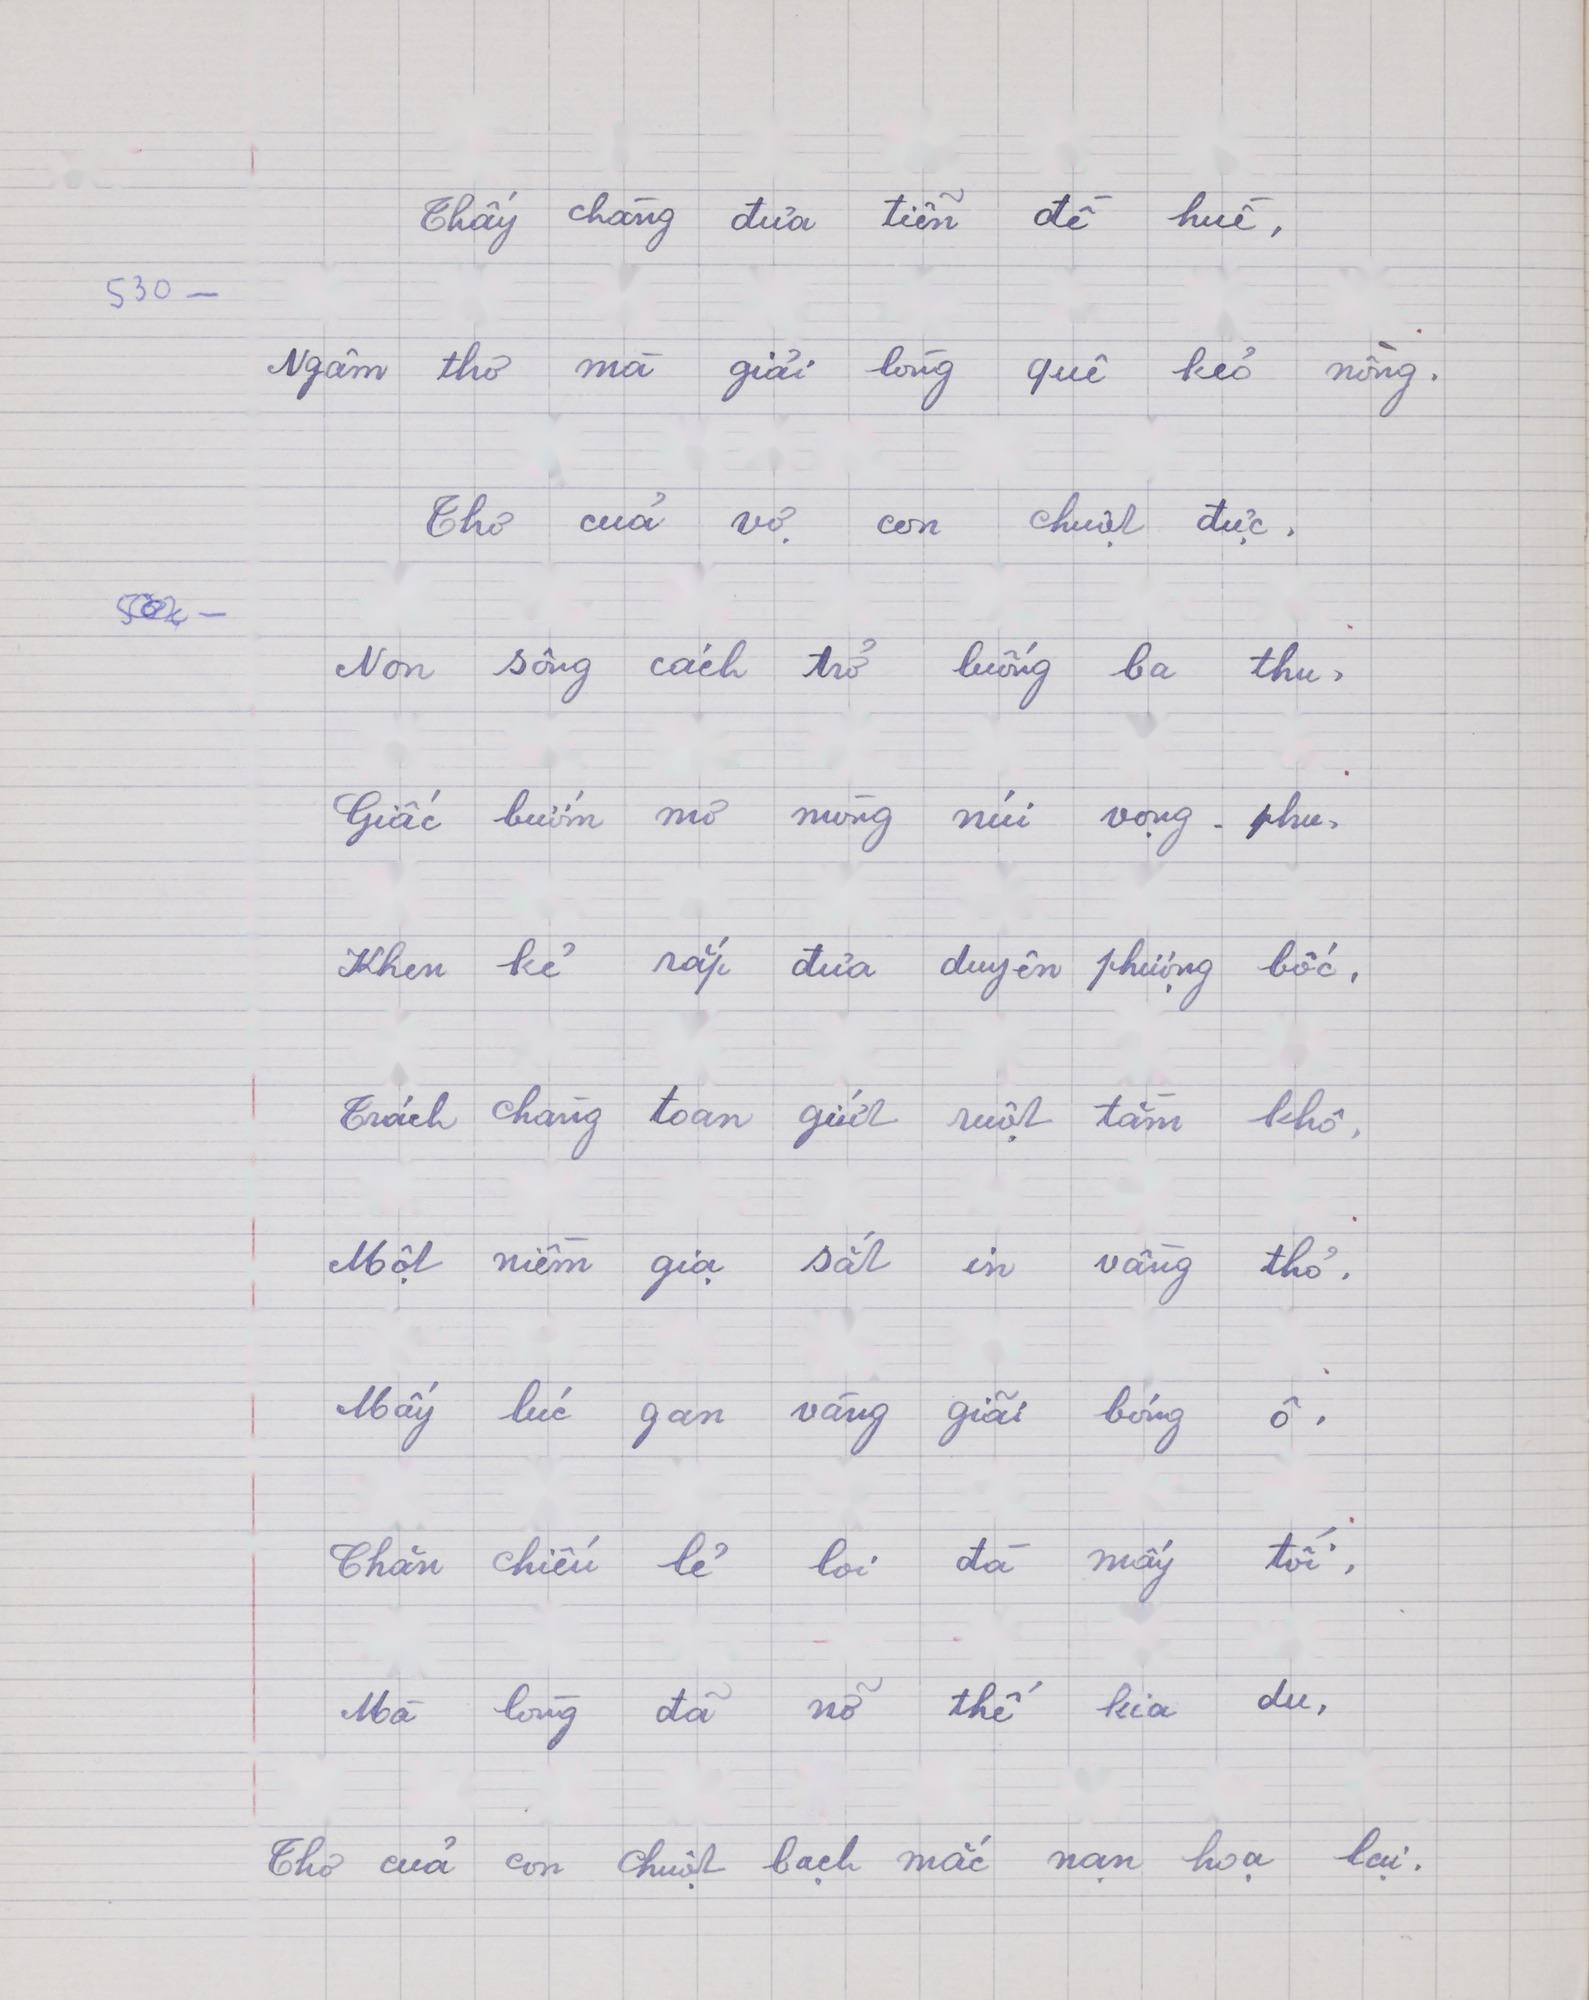 Thấy chàng đưa tiễn đề huề,
530 –
Ngâm thơ mà giải lòng quê kẻo nồng.
Thơ của vợ con chuột đực.
Non sông cách trở luống ba thu,
Giấc bướm mơ mòng núi vọng - phu,
Khen kẻ rắp đưa duyên phượng bốc,
Trách chàng toan giứt ruột tằm khô,
Một niềm giạ sắt in vầng thỏ,
Mấy lúc gan vàng giãi bóng ô,
Chăn chiếu lẻ loi đà mấy tối,
Mà lòng đã nỡ thế kia du,
Thơ của con chuột bạch mắc nạn họa lại.